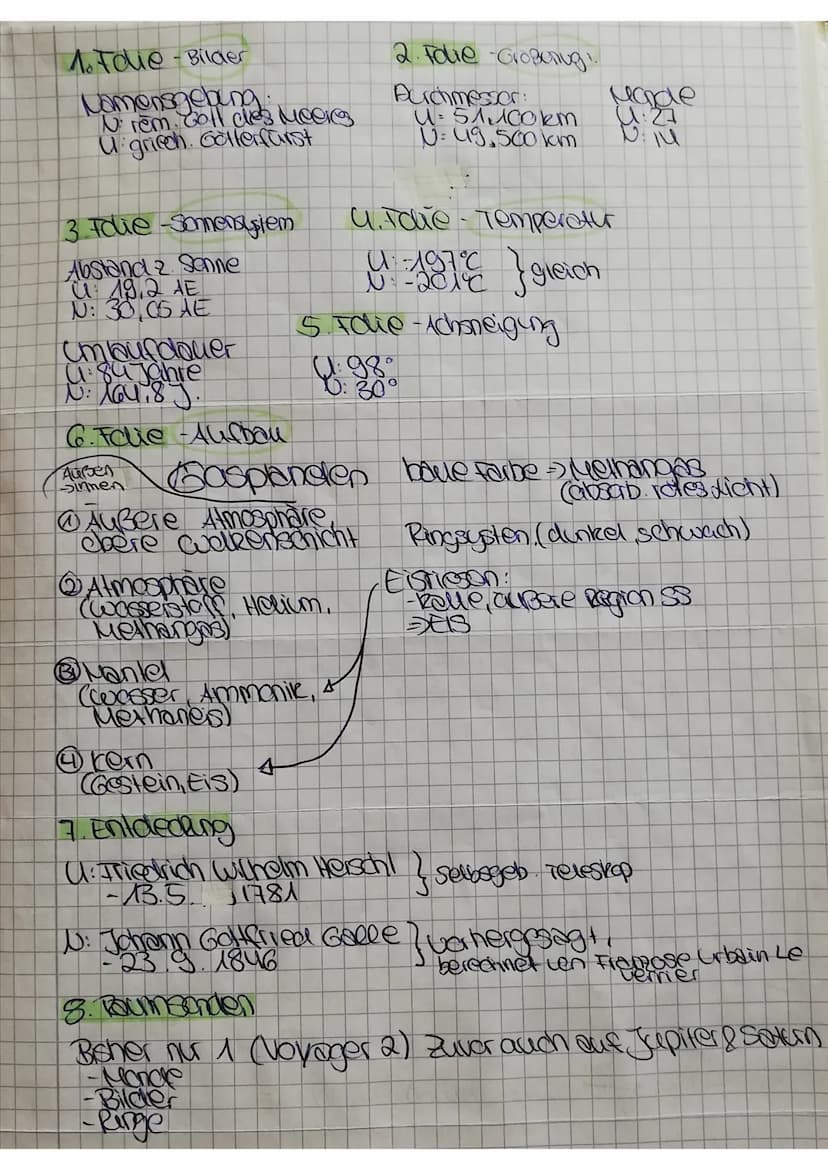 1. Folie - Bilder
Namensgebung:
N: röm. Gott des Meeres
U: griech. Götterfürst
2. Folie - Größenvgl.
Durchmesser:
U: 51.100 km
N: 49.500 km
Monde
U: 27
N: 14
3. Folie - Sonnensystem
Abstand z. Sonne
U: 19,2 AE
N: 30,05 AE
Umlaufdauer
U: 84 Jahre
N: 164,8 J.
4. Folie - Temperatur
U: -197°C
N: -201°C } gleich
5. Folie - Achsneigung
U: 98°
N: 30°
6. Folie - Aufbau
Außen
→ innen
Gasplaneten
① Äußere Atmosphäre,
obere Wolkenschicht
② Atmosphäre
(Wasserstoff, Helium,
Methangas)
③ Mantel
(Wasser, Ammonik,
Methaneis)
④ Kern
(Gestein, Eis)
blaue Farbe => Methangas
(absob. rotes Licht)
Ringsystem (dunkel, schwach)
Eisriesen:
- kalte, äußere Region SS
=> Eis
7. Entdeckung
U: Friedrich Wilhelm Herschl } selbsgeb. Teleskop
- 13.5. 1781
N: Johann Gottfried Galle } vorhergesagt,
- 23.9.1846
berechnet von Franzose Urbain Le
Verrier
8. Raumsonden
Bisher nur 1 (Voyager 2) zuvor auch auf Jupiter & Saturn
- Monde
- Bilder
- Ringe